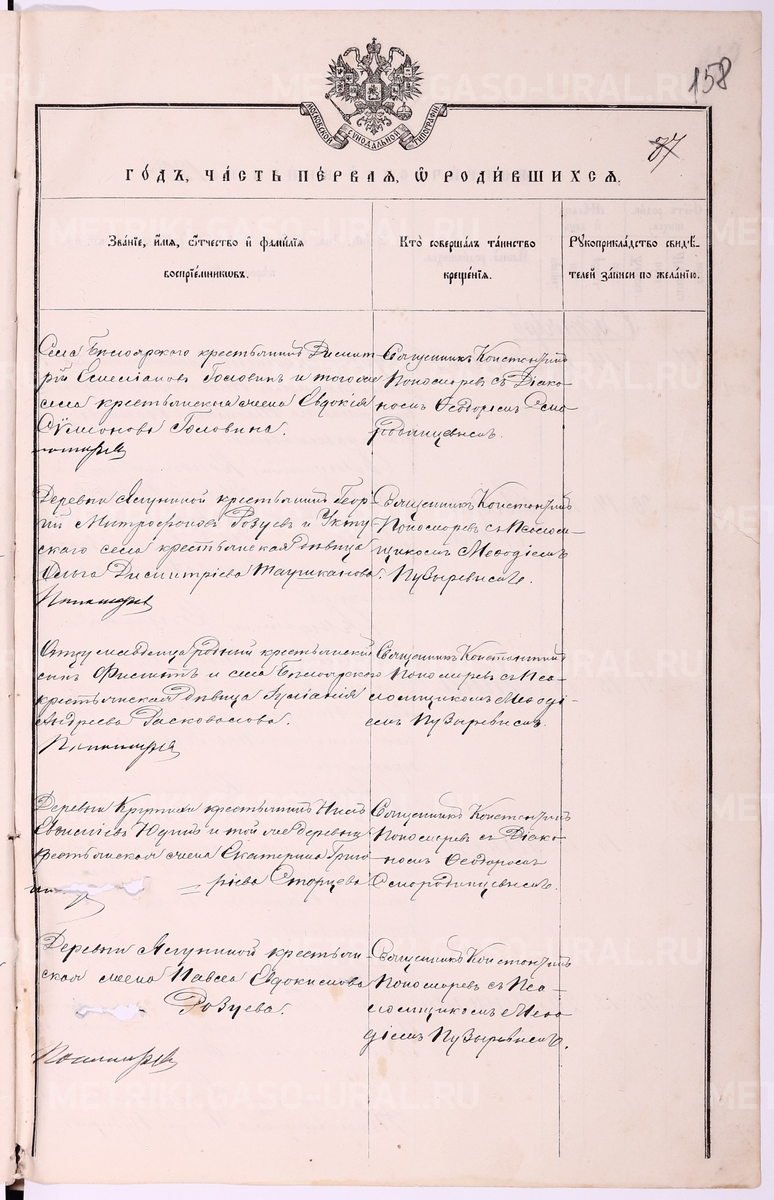 158
37
МОСКОВСКОЙ СѴНОДАЛЬНОЙ ТИПОГРАФІИ
ГО́ДЪ, ЧА́СТЬ ПЕ́РВАЯ, Ѿ РОДИ́ВШИХСѦ.
Зва́нїе, и҆́мѧ, ѻ҆́тчество и҆ фами́лїѧ
воспрїе́мниковъ.
Кто̀ соверша́лъ та́инство
креще́нїѧ.
Рꙋкоприкла́дство свидѣ́-
телей за́писи по жела́нїю.
Села Бѣлоярского крестьянинъ Димит
рій Головинъ и того же
села крестьянская жена Евдокія
Сѵмеонова Головина.
Священникъ Константинъ
Пономаревъ съ Діако-
номъ Ѳеодоромъ Смо
родинцевымъ.
Деревни Ягуниной крестьянинъ Геор
гій Митрофановъ Розуевъ и Укту
скаго села крестьянская дѣвица
Ольга Димитріева
Священникъ Константинъ
Пономаревъ съ Псалом-
щикомъ Меѳодіемъ
Пузыревымъ.
родный крестьянскій
сынъ и села Бѣлоярского
крестьянская дѣвица Іуліанія
Андреева
Священникъ Константинъ
Пономаревъ съ Пса-
ломщикомъ Меѳоді-
емъ Пузыревымъ.
Деревни крестьянинъ
Юдинъ и той же деревни
крестьянская жена Екатерина Григо
ріева
Священникъ Константинъ
Пономаревъ съ Діако-
номъ Ѳеодоромъ
Смородинцевымъ.
Деревни Ягуниной крестьян-
ская жена Павла Евдокимова
Розуева.
Священникъ Константинъ
Пономаревъ съ Пса-
ломщикомъ Меѳо-
діемъ Пузыревымъ.
METRIKI.GASO-URAL.RU